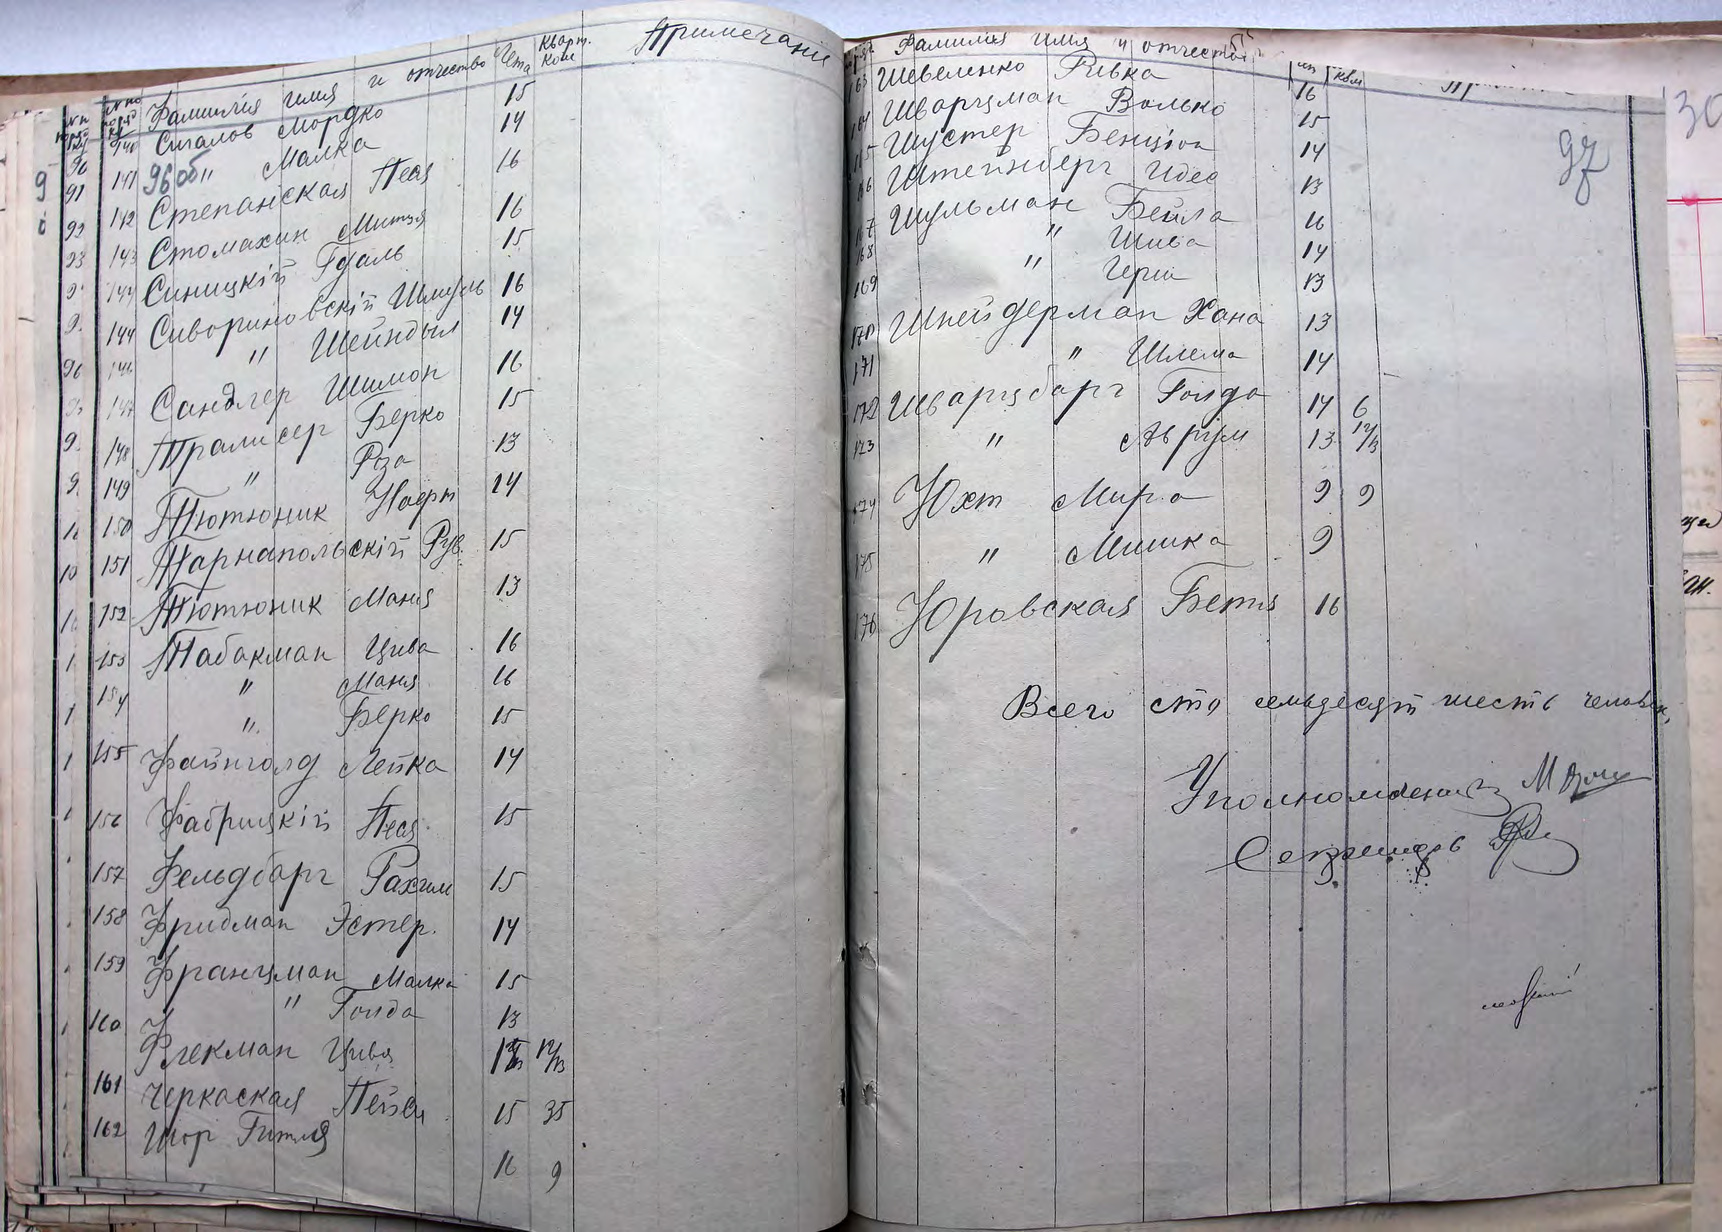 Фамилия имя и отчество Лета Кварт. Ком Примечани
140 Сигалов Мордко 15
90 141 " Малка 14
96 об
91 142 Степанская Песя 16
92 143 Стомахин Митя 16
93 144 Синицкій Гдаль 15
144 Сивориновскій Шмуль 16
96 146 " Шейндыл 14
147 Сандлер Шимон 16
148 Тралисер Берко 15
149 " Роза 13
150 Тютюник Ноерт 14
151 Тарнапольскій Рув. 15
152 Тютюник Маня 13
153 Табакман Цива 16
154 " Маня 16
" Берко 15
155 Файнголд Лейка 14
156 Фабрицкій Песя 15
157 Фельдбарг Рахил 15
158 Фридман Эстер. 14
159 Францман Малка 15
160 " Голда 13
Флекман Цивя 12/13
161 Черкаская Пейся 15 35
162 Шор Гитля 16 9
Фамилия имя и отчество
97
163 Шевеленко Ривка 16
164 Шварцман Волько 15
165 Шустер Бенціон 14
166 Штейнберг Идес 13
167 Шульман Бейла 16
168 " Шива 14
169 " Герш 13
170 Шнейдерман Хана 13
171 " Шлема 14
172 Шварцбарг Голда 14 6
173 " Аврум 13 12/13
174 Юхт Мира 9 9
175 " Мишка 9
176 Юровская Бетя 16
Всего сто семьдесят шесть человек,
Уполномоченный М
Секретарь